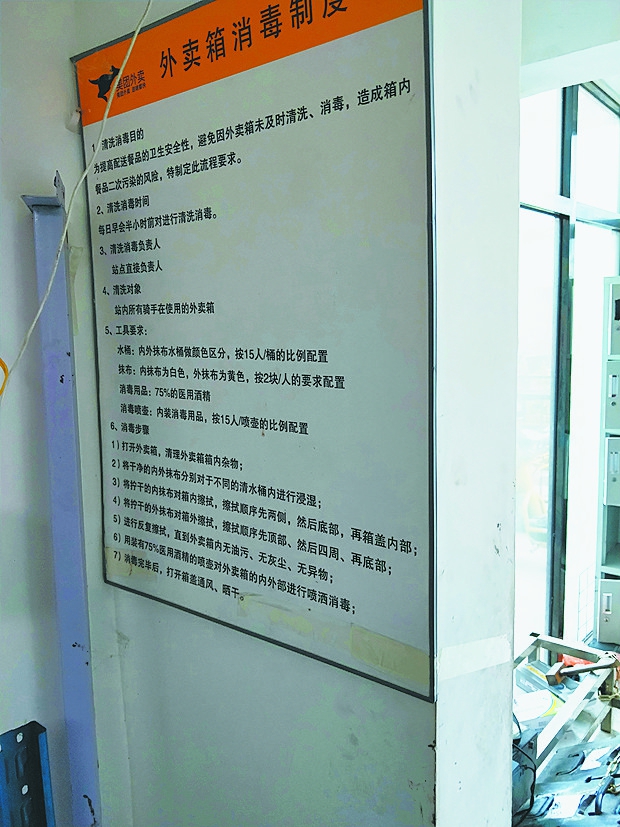 美团外卖
外卖箱消毒制度
1、清洗消毒目的
为提高配送餐品的卫生安全性，避免因外卖箱未及时清洗、消毒，造成箱内
餐品二次污染的风险，特制定此流程要求。
2、清洗消毒时间
每日早会半小时前对进行清洗消毒。
3、清洗消毒负责人
站点直接负责人
4、清洗对象
站内所有骑手在使用的外卖箱
5、工具要求：
水桶：内外抹布水桶做颜色区分，按15人/桶的比例配置
抹布：内抹布为白色，外抹布为黄色，按2块/人的要求配置
消毒用品：75%的医用酒精
消毒喷壶：内装消毒用品，按15人/喷壶的比例配置
6、消毒步骤
1）打开外卖箱，清理外卖箱箱内杂物；
2）将干净的内外抹布分别对于不同的清水桶内进行浸湿；
3）将拧干的内抹布对箱内擦拭，擦拭顺序先两侧，然后底部，再箱盖内部；
4）将拧干的外抹布对箱外擦拭，擦拭顺序先顶部、然后四周、再底部；
5）进行反复擦拭，直到外卖箱内无油污、无灰尘、无异物；
6）用装有75%医用酒精的喷壶对外卖箱的内外部进行喷洒消毒；
7）消毒完毕后，打开箱盖通风、晒干